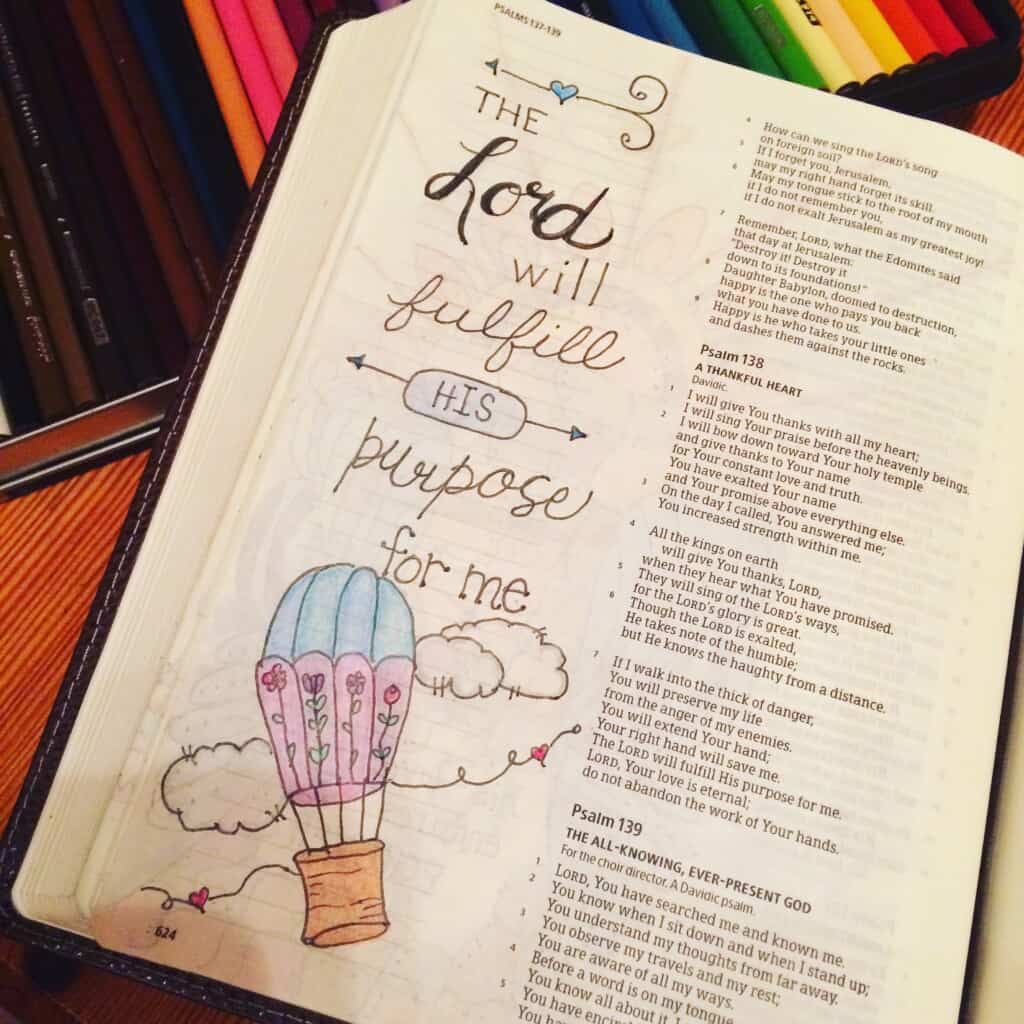 PSALMS 137-139
THE
Lord
will
fulfill
HIS
purpose
for me
624
4 How can we sing the LORD's song
on foreign soil?
5 If I forget you, Jerusalem,
may my right hand forget its skill.
6 May my tongue stick to the roof of my mouth
if I do not remember you,
if I do not exalt Jerusalem as my greatest joy!
7 Remember, LORD, what the Edomites said
that day at Jerusalem:
"Destroy it! Destroy it
down to its foundations!"
8 Daughter Babylon, doomed to destruction,
happy is the one who pays you back
what you have done to us.
9 Happy is he who takes your little ones
and dashes them against the rocks.
Psalm 138
A THANKFUL HEART
Davidic.
1 I will give You thanks with all my heart;
I will sing Your praise before the heavenly beings.
2 I will bow down toward Your holy temple
and give thanks to Your name
for Your constant love and truth.
You have exalted Your name
and Your promise above everything else.
3 On the day I called, You answered me;
You increased strength within me.
4 All the kings on earth
will give You thanks, LORD,
when they hear what You have promised.
5 They will sing of the LORD's ways,
for the LORD's glory is great.
6 Though the LORD is exalted,
He takes note of the humble;
but He knows the haughty from a distance.
7 If I walk into the thick of danger,
You will preserve my life
from the anger of my enemies.
You will extend Your hand;
Your right hand will save me.
8 The LORD will fulfill His purpose for me.
LORD, Your love is eternal;
do not abandon the work of Your hands.
Psalm 139
THE ALL-KNOWING, EVER-PRESENT GOD
For the choir director. A Davidic psalm.
1 LORD, You have searched me and known me.
2 You know when I sit down and when I stand up;
You understand my thoughts from far away.
3 You observe my travels and my rest;
You are aware of all my ways.
4 Before a word is on my tongue,
You know all about it, L
5 You have encir
You ha